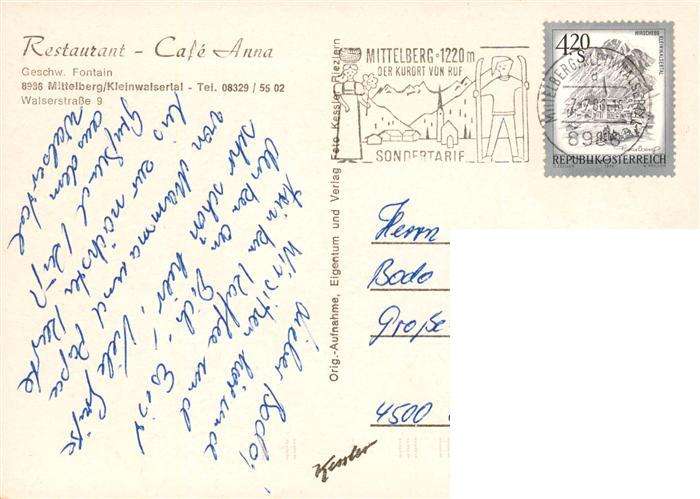 Restaurant - Café Anna
Geschw. Fontain
8986 Mittelberg/Kleinwalsertal - Tel. 08329 / 55 02
Walserstraße 9
MITTELBERG • 1220 m
DER KURORT VON RUF
SONDERTARIF
4.20
S
HIRSCHEGG
KLEINWALSERTAL
REPUBLIK ÖSTERREICH
MITTELBERG
8986
Orig.-Aufnahme, Eigentum und Verlag Foto Kessler Riezlern
Lieber Bodo,
Wir sitzen hier und
trinken Kaffee und
denken an Dich! Es ist
sehr schön hier,
von Mamma und Papa
bis zur nächsten Karte
Viele Grüße
aus dem
Walsertal
Herrn
Bodo
Große
4500
Kessler